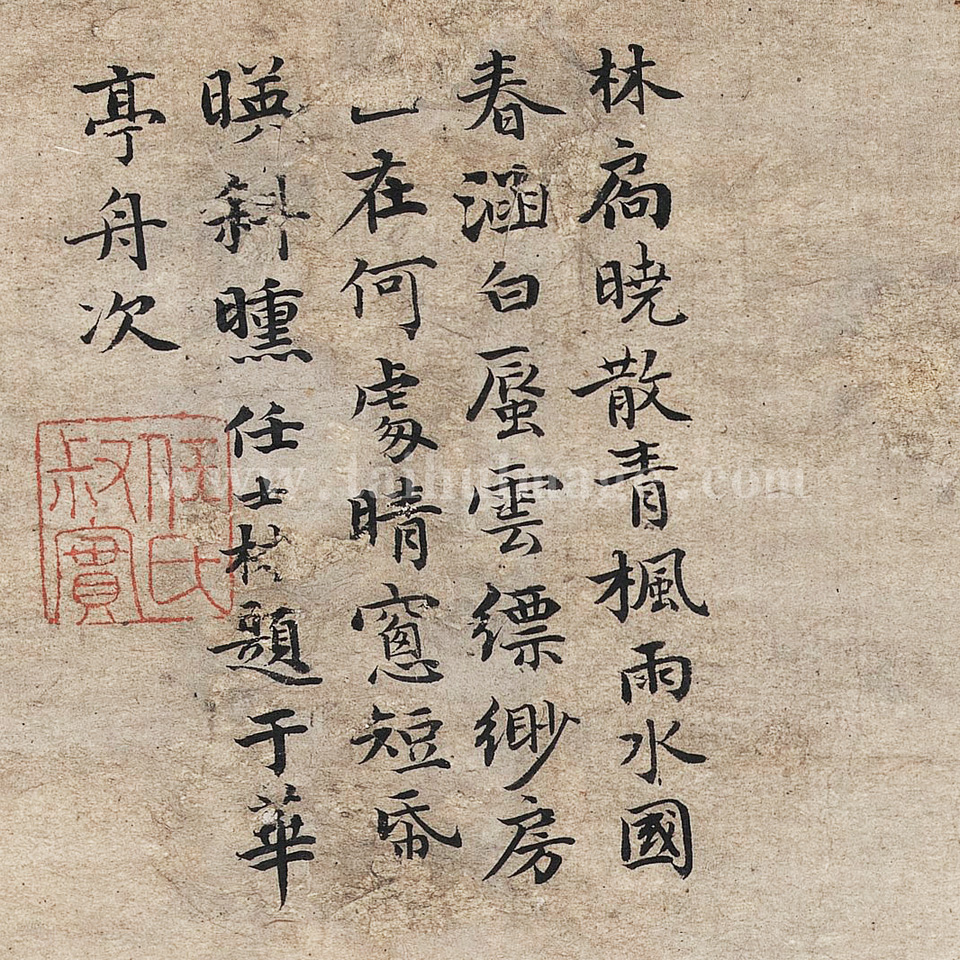 林扃曉散青楓雨水國
春涵白蜃雲縹緲房
一在何處晴窻短帋
暎斜曛任士林題于華
亭舟次
任氏
叔實